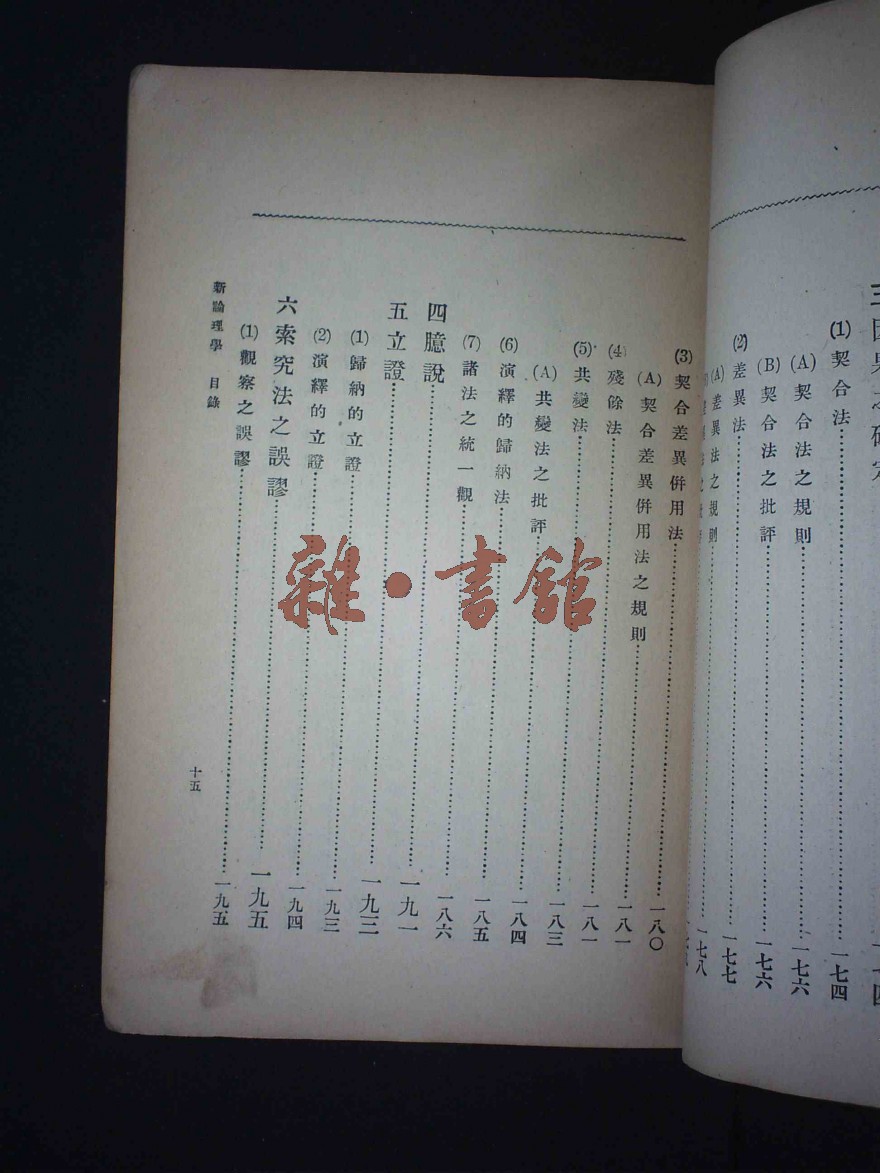 (1) 契合法 一七四
(A) 契合法之規則 一七六
(B) 契合法之批評 一七六
(2) 差異法 一七七
(A) 差異法之規則 一七八
(3) 契合差異併用法 一八〇
(A) 契合差異併用法之規則 一八一
(4) 殘餘法 一八一
(5) 共變法 一八三
(A) 共變法之批評 一八四
(6) 演繹的歸納法 一八五
(7) 諸法之統一觀 一八六
四臆說 一九一
五立證 一九三
(1) 歸納的立證 一九三
(2) 演繹的立證 一九四
六索究法之誤謬 一九五
(1) 觀察之誤謬 一九五
新論理學 目錄
十五
雜·書館